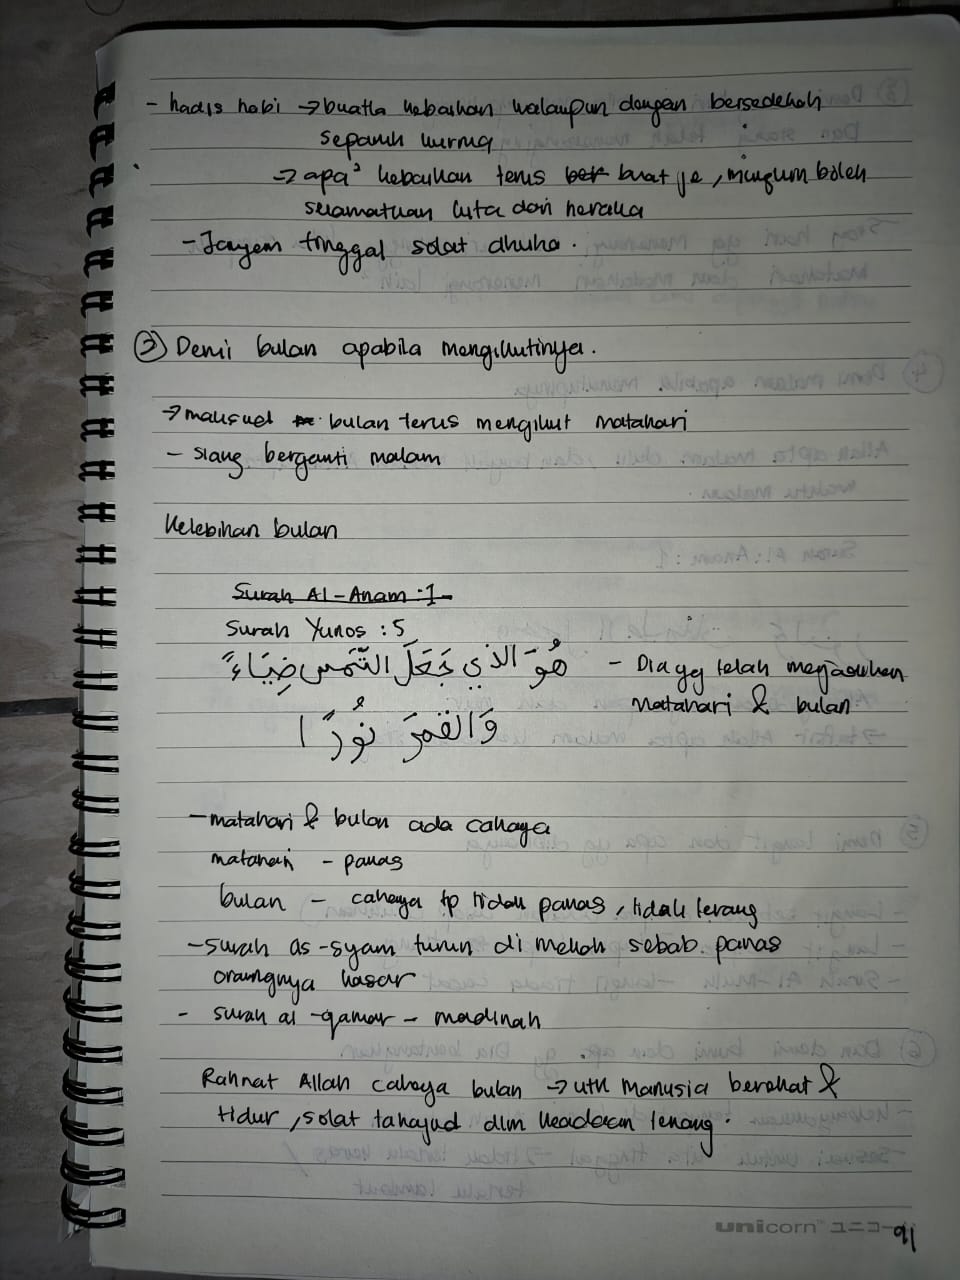 - hadis nabi → buatla kebaikan walaupun dengan bersedekah
separuh kurma
→ apa² kebaikan terus buat je, mungkin boleh
selamatkan kita dari neraka
- Jangan tinggal solat dhuha.
② Demi bulan apabila mengikutinya.
→ maksud bulan terus mengikut matahari
- siang berganti malam
Kelebihan bulan
Surah Al-Anam :1
Surah Yunos : 5
هُوَ الذي جَعَلَ الشَّمس ضِيَاءً - Dia yg telah menjadikan
وَالقمَرَ نُورًا matahari & bulan
- matahari & bulan ada cahaya
matahari - panas
bulan - cahaya tp tidak panas, tidak terang
- surah as-syam turun di mekah sebab panas
orangnya kasar
- surah al-qamar - madinah
Rahmat Allah cahaya bulan → utk manusia berehat &
tidur, solat tahajud dlm keadaan tenang.
unicorn™ ユニコーン
16